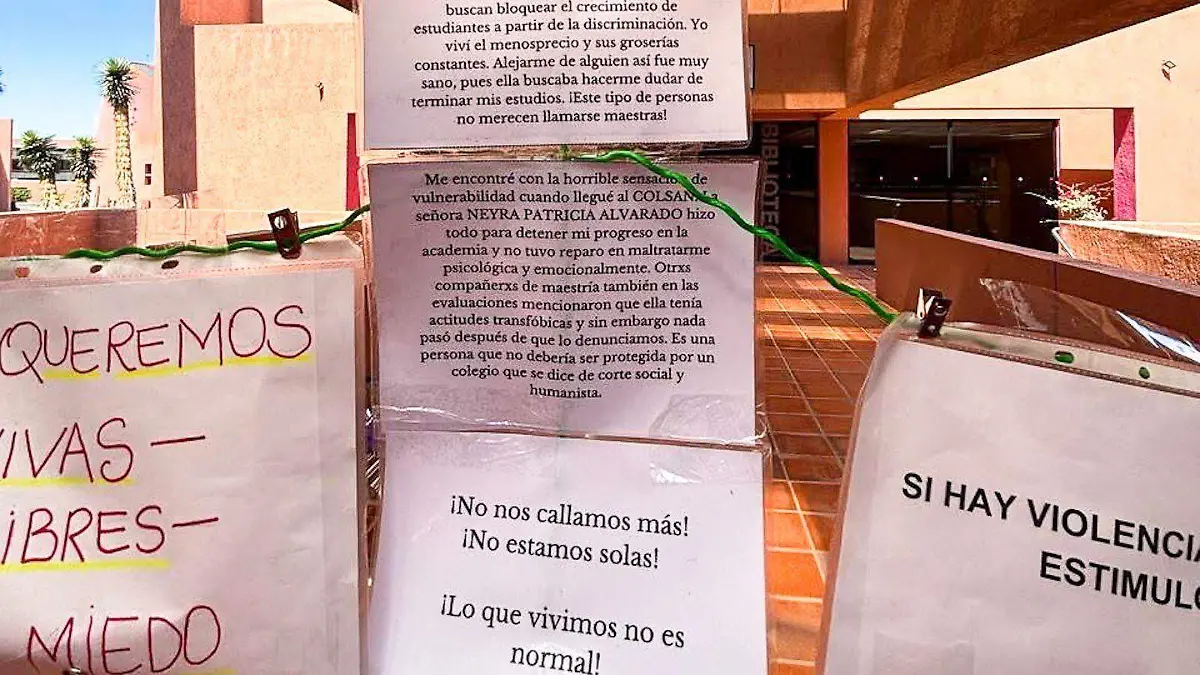 buscan bloquear el crecimiento de
estudiantes a partir de la discriminación. Yo
viví el menosprecio y sus groserías
constantes. Alejarme de alguien así fue muy
sano, pues ella buscaba hacerme dudar de
terminar mis estudios. ¡Este tipo de personas
no merecen llamarse maestras!
Me encontré con la horrible sensación de
vulnerabilidad cuando llegué al COLSAN. La
señora NEYRA PATRICIA ALVARADO hizo
todo para detener mi progreso en
la academia y no tuvo reparo en maltratarme
psicológica y emocionalmente. Otrxs
compañerxs de maestría también en las
evaluaciones mencionaron que ella tenía
actitudes transfóbicas y sin embargo nada
pasó después de que lo denunciamos. Es una
persona que no debería ser protegida por un
colegio que se dice de corte social y
humanista.
¡No nos callamos más!
¡No estamos solas!
¡Lo que vivimos no es
normal!
QUEREMOS
VIVAS —
LIBRES —
MIEDO
SI HAY VIOLENCIA
ESTIMULO
BIBLIOTECA